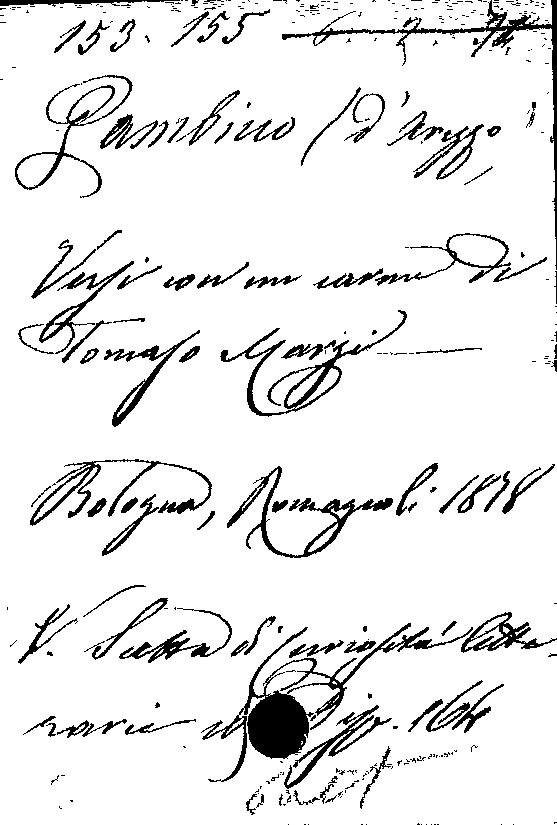 153. 155 6. 2. 
Gambino (d'Arezzo
Versi con un carme di
Tomaso Marzi
Bologna, Romagnoli 1878
V. Scelta di curiosità lette-
rarie Disp. 164